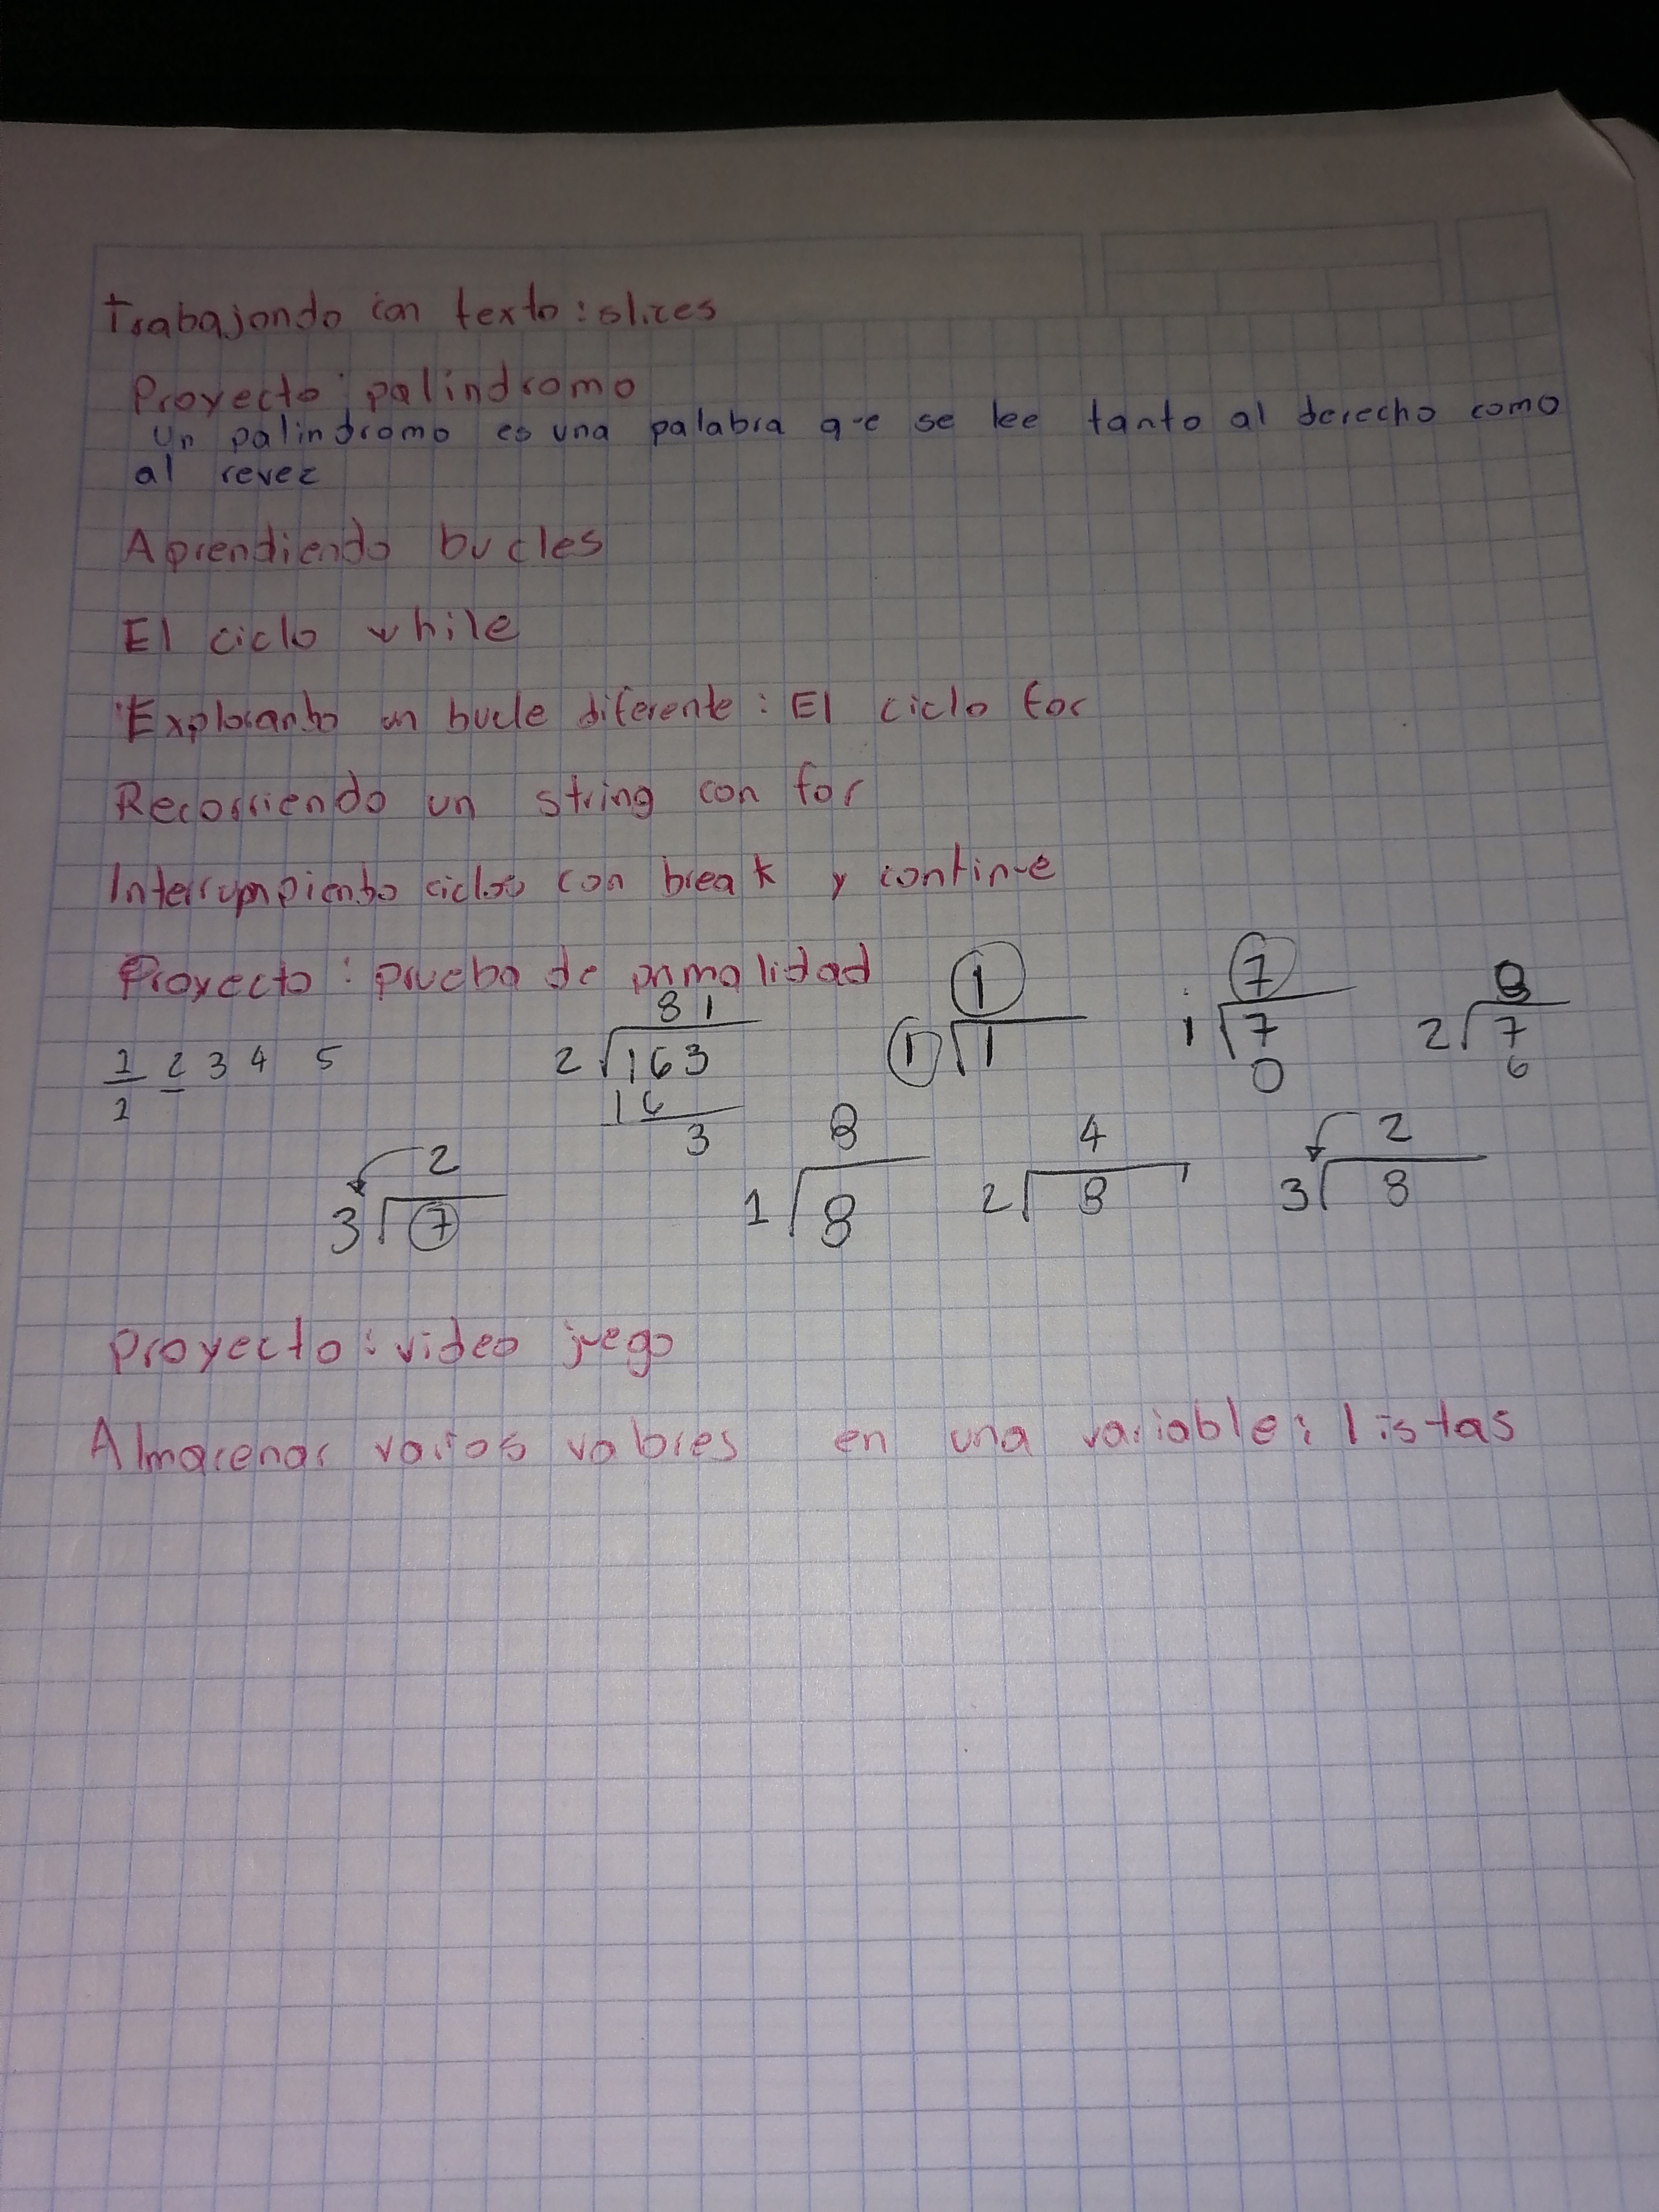 Trabajando con texto: slices
Proyecto: palindromo
Un palindromo es una palabra que se lee tanto al derecho como
al revez
Aprendiendo bucles
El ciclo while
Explorando un bucle diferente: El ciclo for
Recorriendo un string con for
Interrumpiendo ciclos con break y continue
Proyecto: prueba de primalidad
1 2 3 4 5
1
81
2 163
16
3
1
1 1
7
1 7
0
8
2 7
6
2
3 7
8
1 8
4
2 8
2
3 8
proyecto: video juego
Almacenar varios valores en una variable: listas